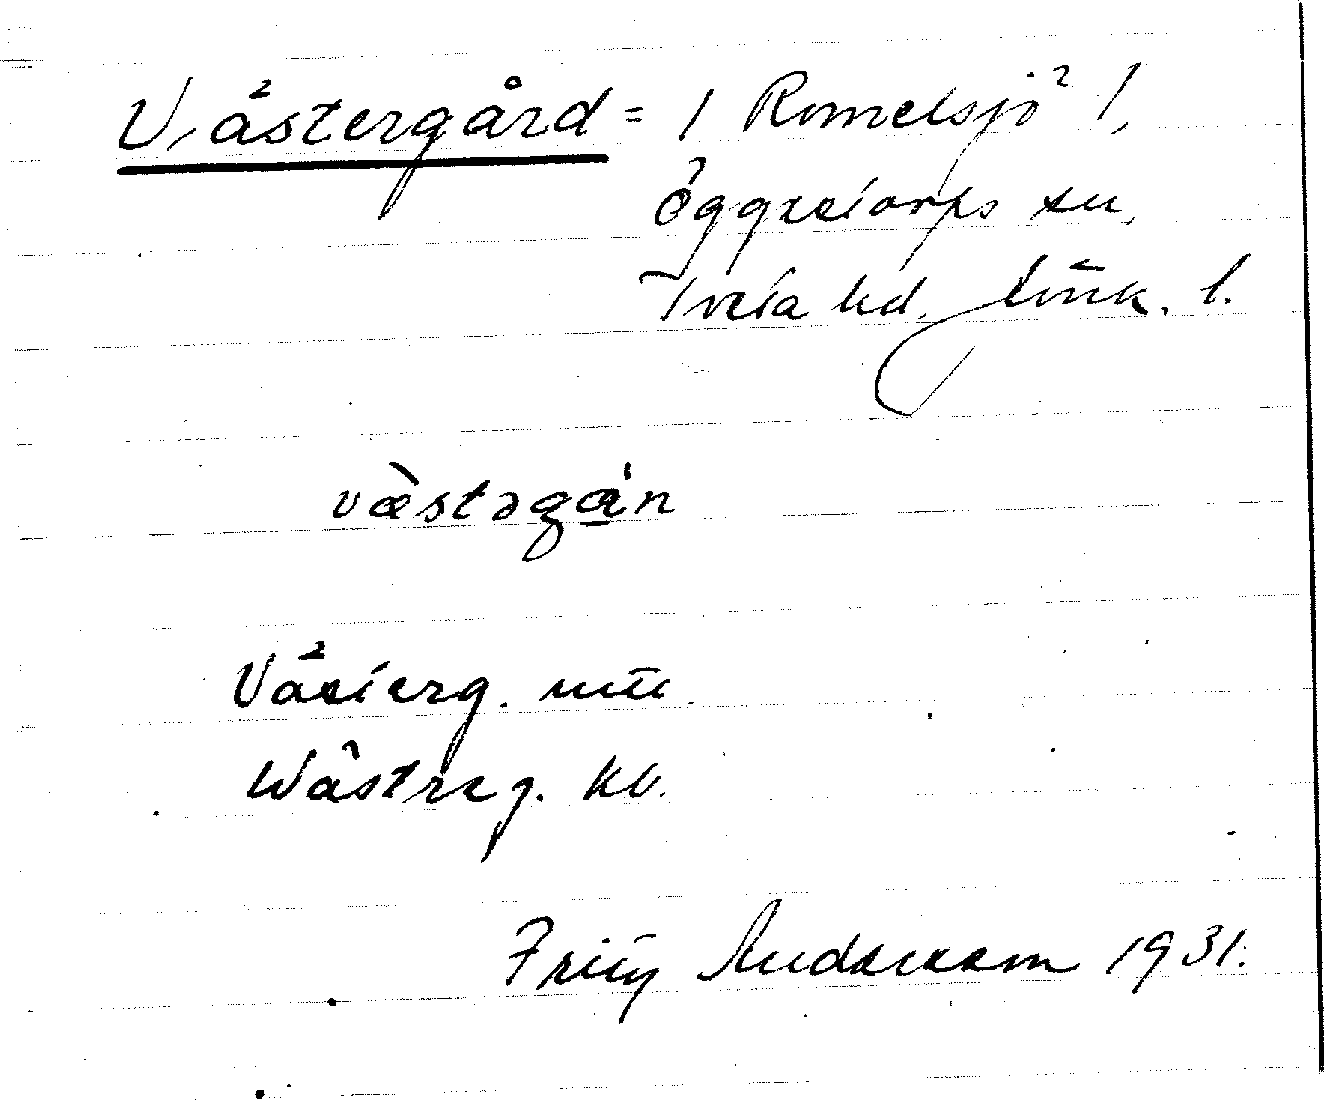 Västergård = 1 Romelsjö 1,
Öggestorps sn,
Tveta hd. Jönk. l.
væ̀stəgɑ̲́n
Västerg. mtl.
Wästreg. kb.
Fritz Andersson 1931.